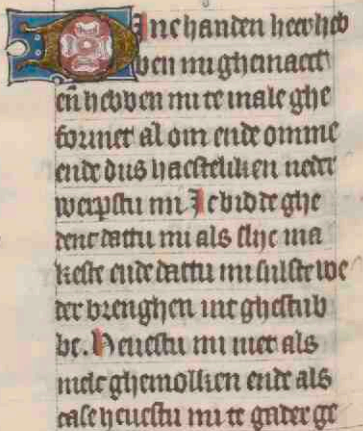 Dine handen heer heb
ben mi ghemaect
en̄ hebben mi te male ghe
formet al om ende omme
ende dus haesteliken neder
werpstu mi Ic bidde ghe
denc dattu mi als slijc ma
keste ende dattu mi sulste we
der brenghen int ghestub
be. Heuestu mi niet als
melc ghemolken ende als
case heuestu mi te gader ge